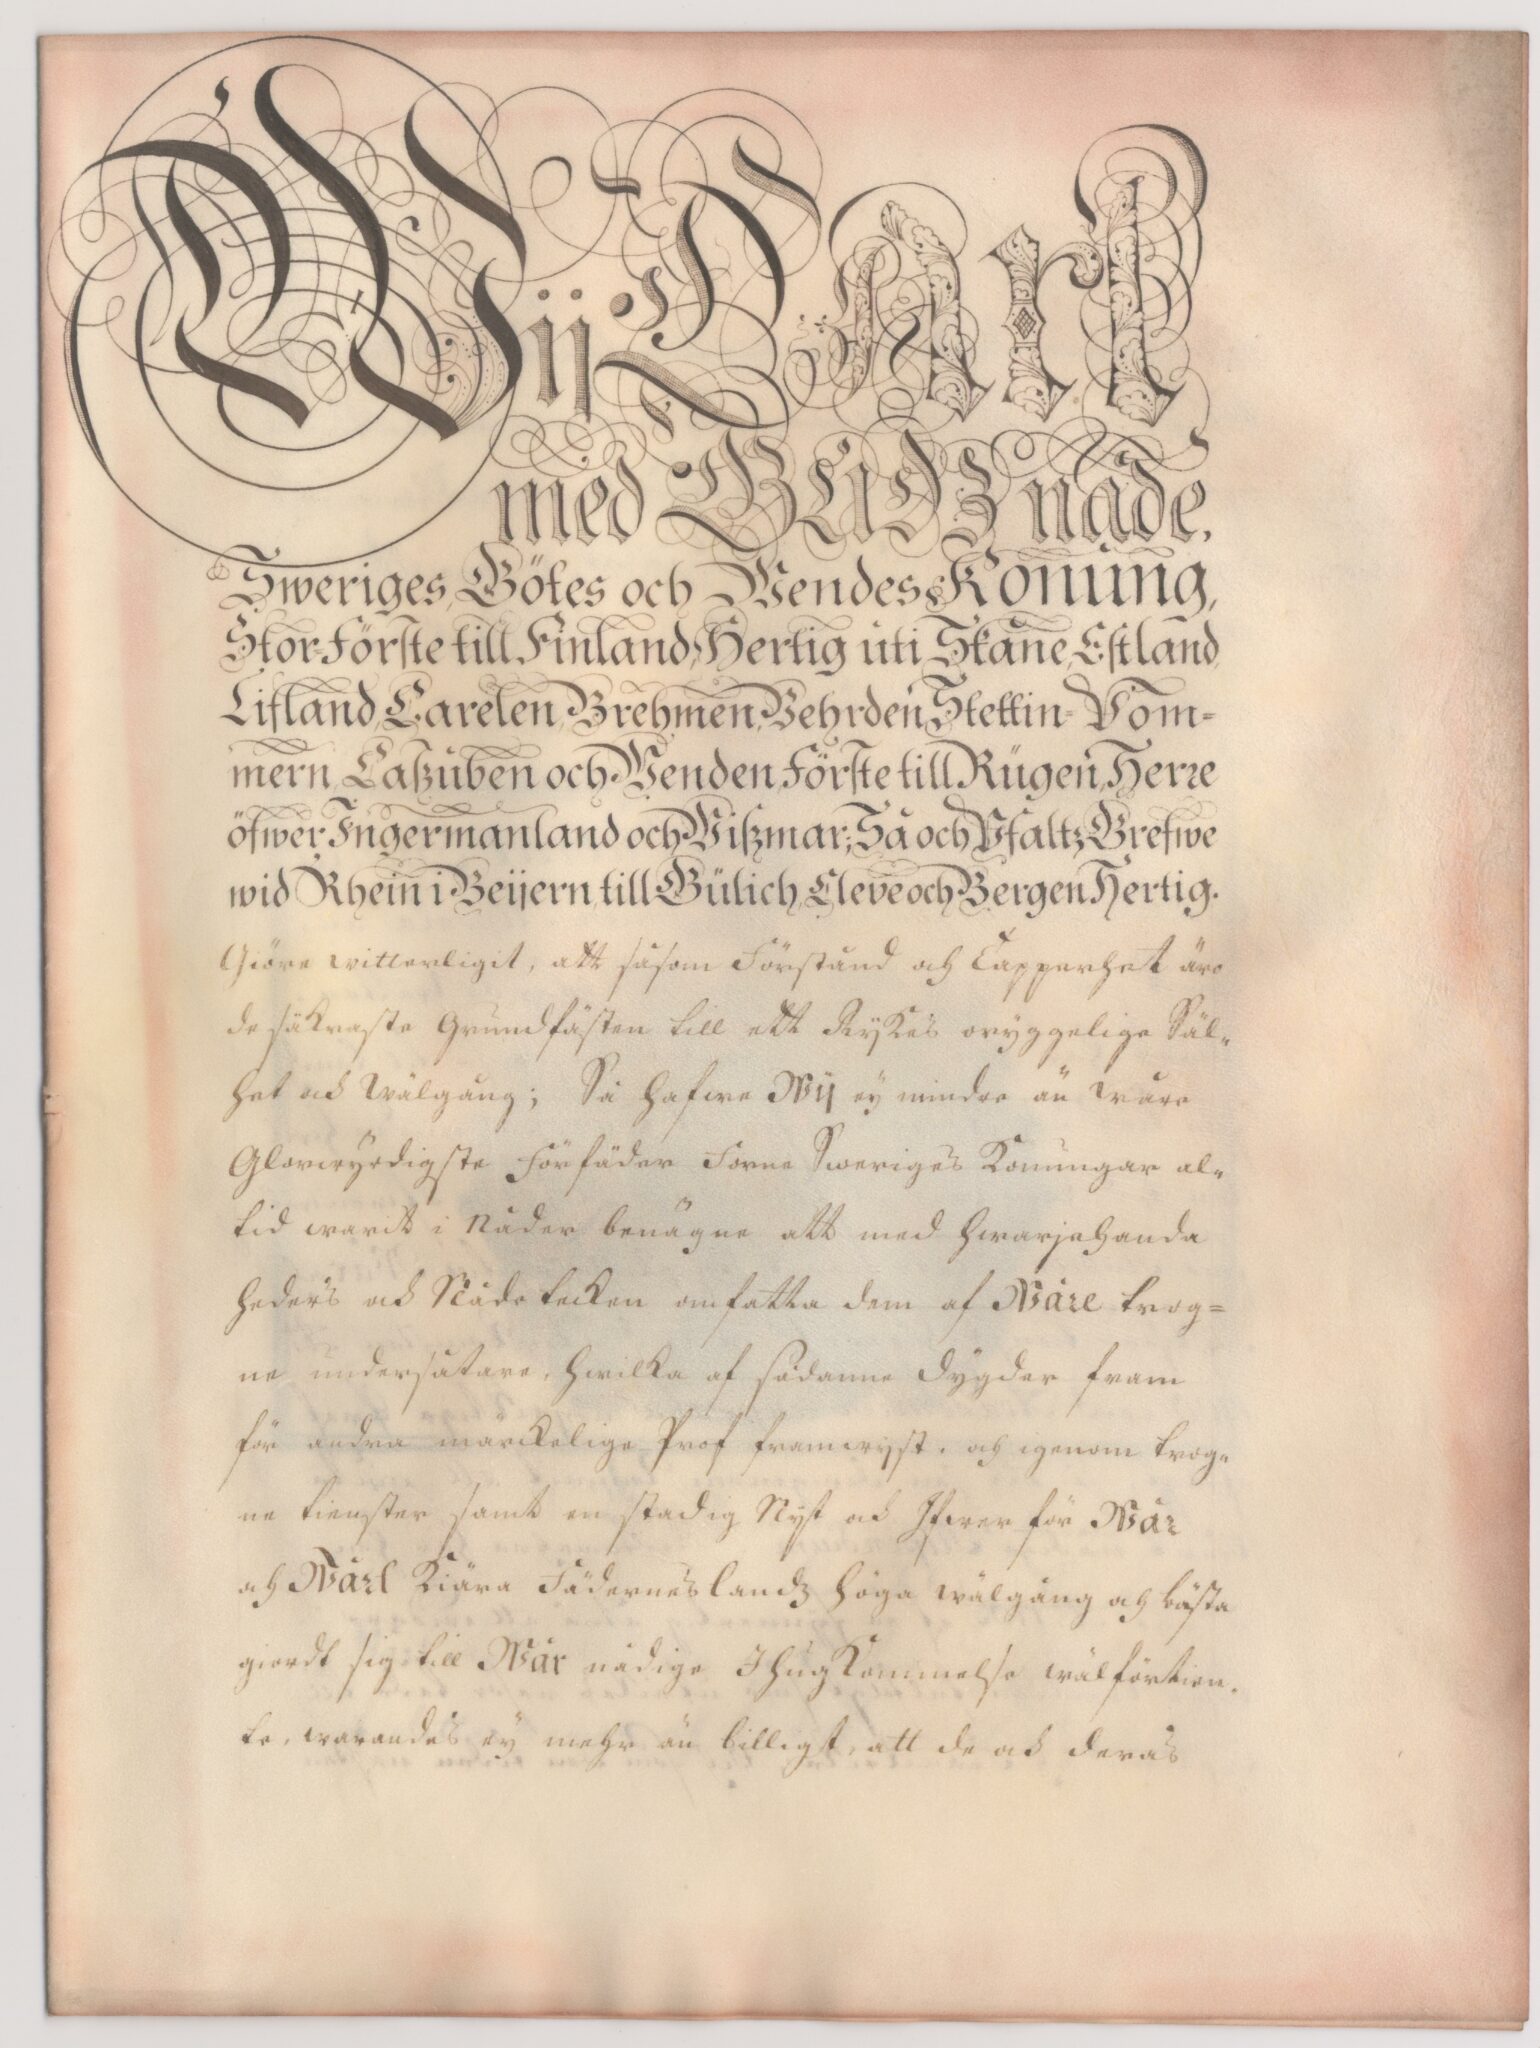 Wij Carl
med GUDZ nåde,
Sweriges, Götes och Wendes Konung,
Stor-Förste till Finland, Hertig uti Skåne, Estland,
Lifland, Carelen, Brehmen, Vehrden, Stettin-Pom-
mern, Caßuben och Wenden, Förste till Rügen, Herre
öfwer Ingermanland och Wißmar; Så och Pfaltz Grefwe
wid Rhein i Beijern, till Gülich, Cleve och Bergen Hertig.
Giöre witterligit, att såsom Förstånd och Tapperhet äro
de säkraste Grundfästen till ett Rykes oryggelige Säl-
het och wälgång; Så hafwe Wij ey mindre än wåre
Glorwyrdigste Förfäder Forne Sweriges Konungar al-
tid warit i Nåder benägne att med hwarjehanda
heders och Nåde tecken omfatta dem af Wåre trog=
ne undersåtare, hwilka af sådanne dygder fram
för andra märckelige Prof framwyst, och igenom trog-
ne tienster samt en stadig Nyt och Ifwer för Wår
och Wårt kiära Fäderneslandz höga wälgång och bästa
giordt sig till Wår nådige Ihugkommelse wälförtien-
te, warandes ey mehr än billigst, att de och deras